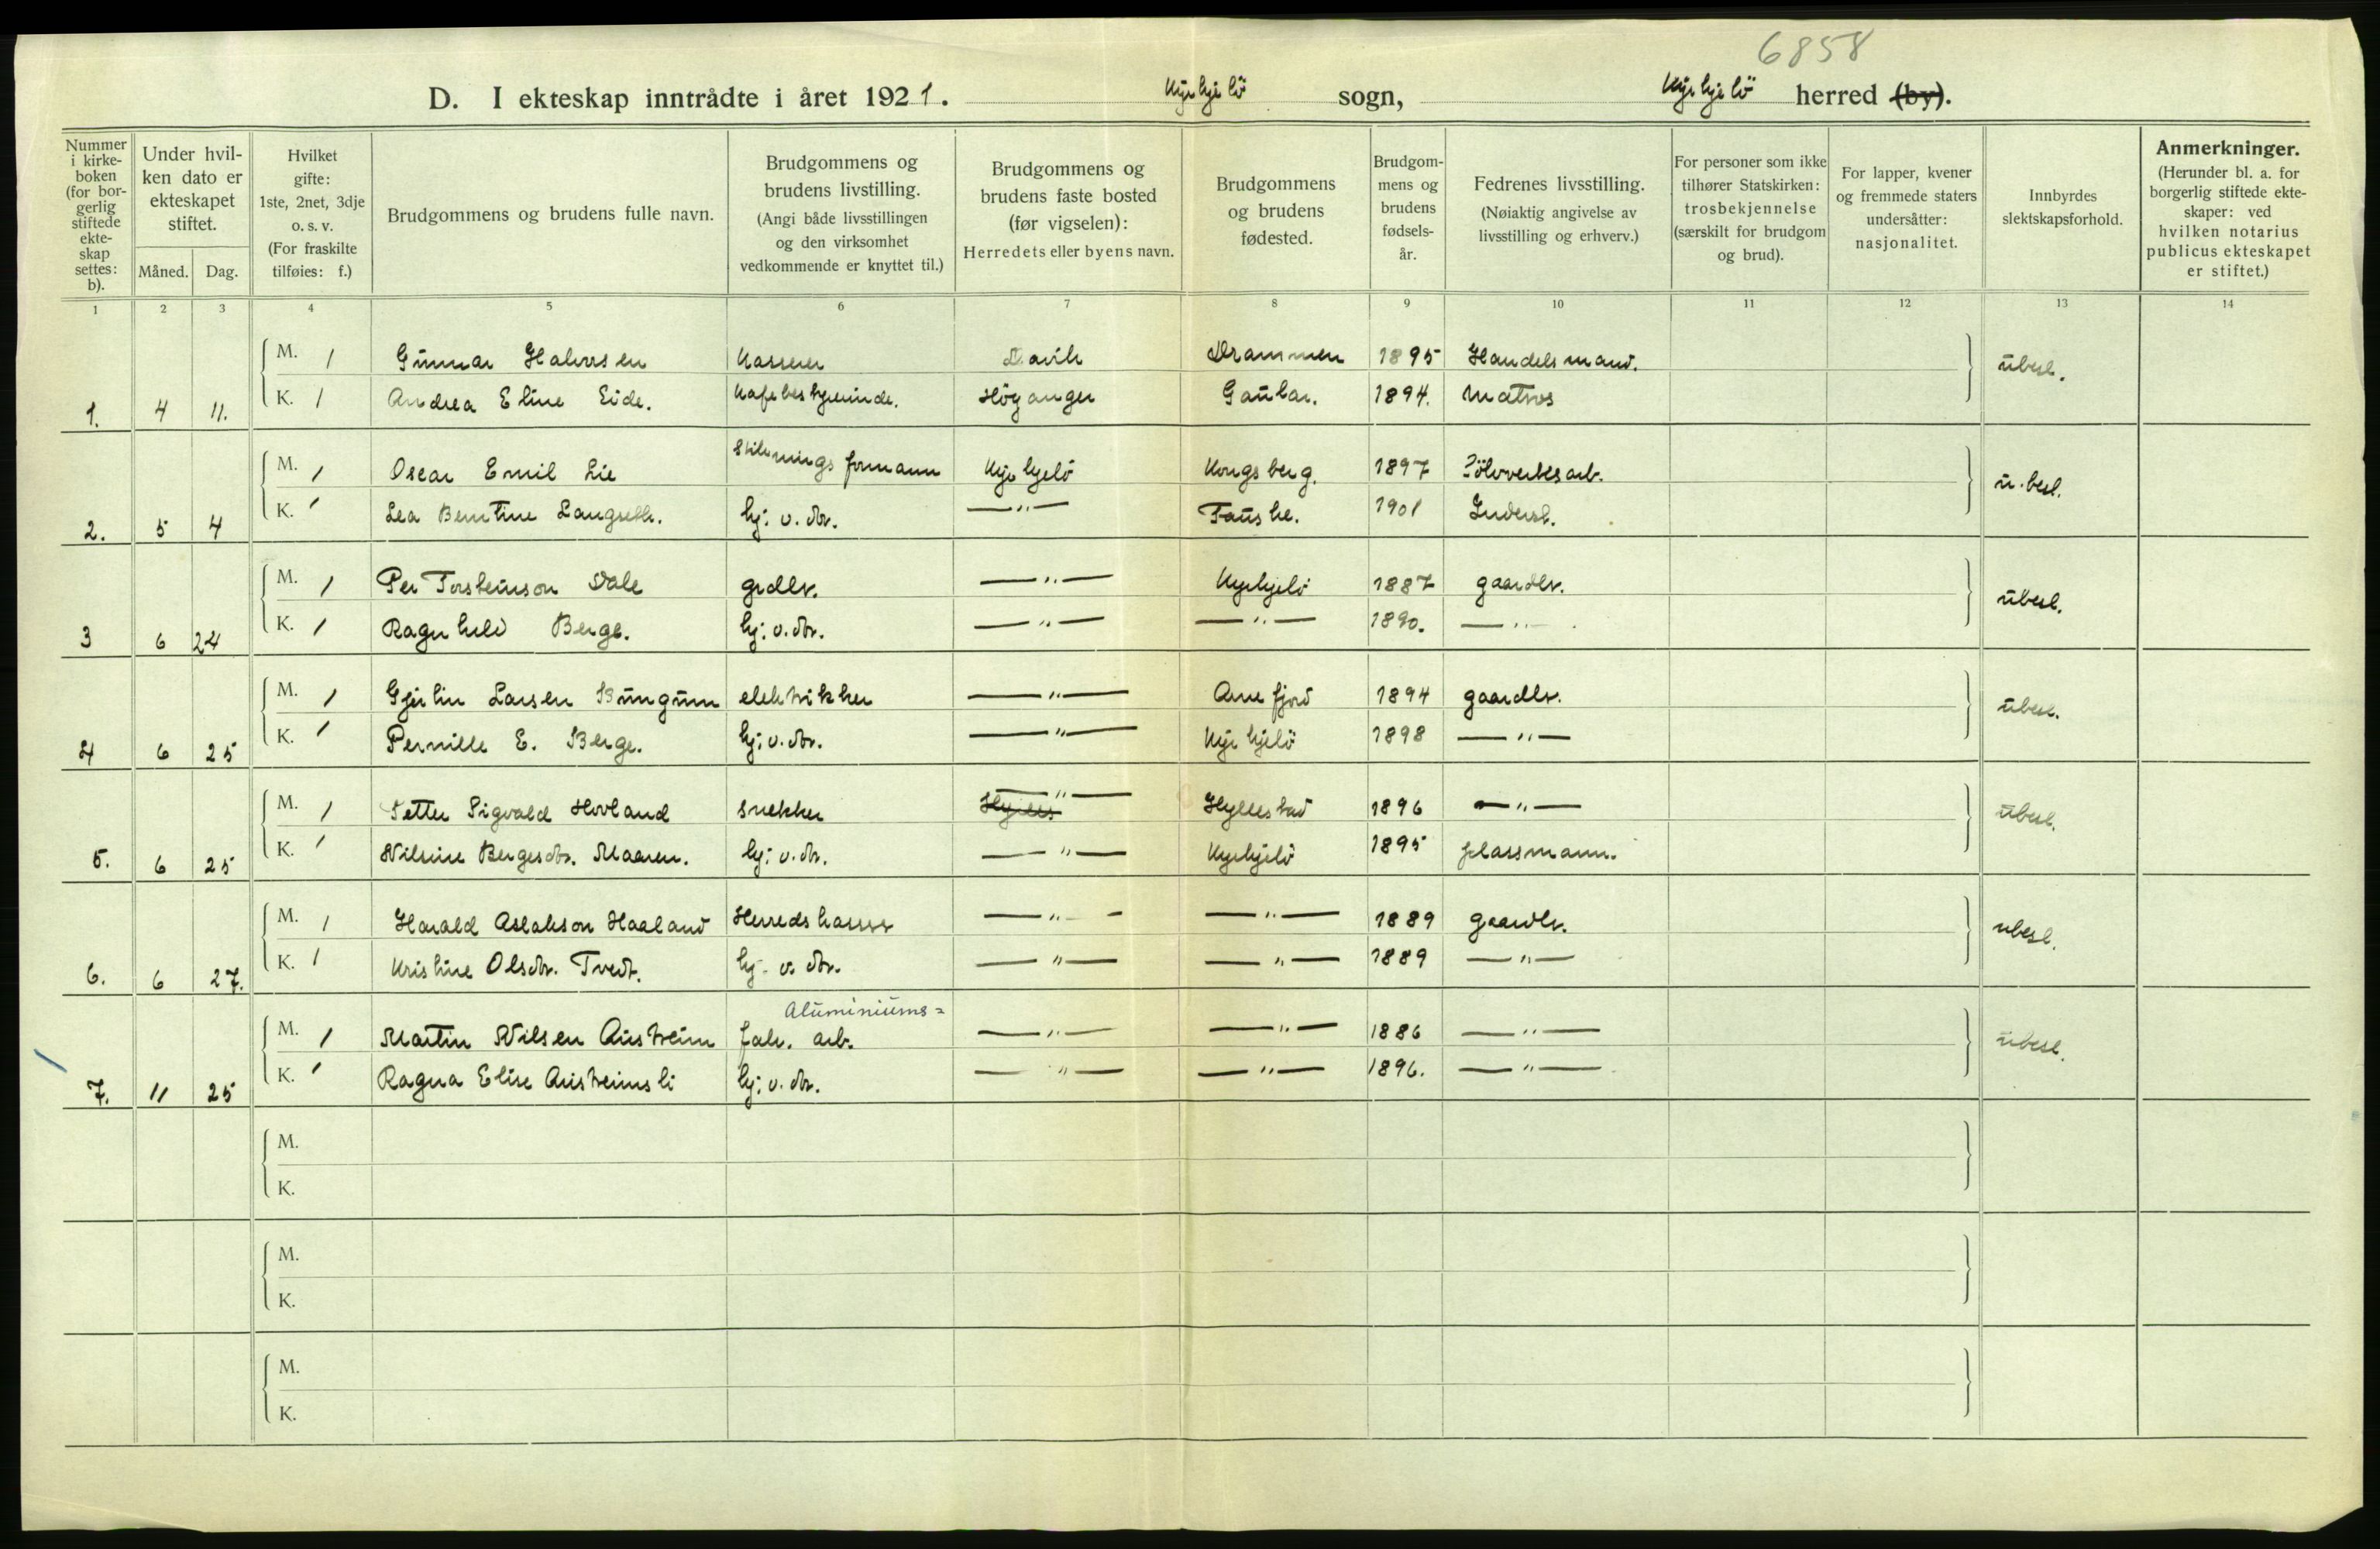 6858
D. I ekteskap inntrådte i året 1921. Kyrkjebö sogn, Kyrkjebö herred (by).
Nummer i kirkeboken (for borgerlig stiftede ekteskap settes: b).
Under hvilken dato er ekteskapet stiftet.
Måned. Dag.
Hvilket gifte: 1ste, 2net, 3dje o. s. v. (For fraskilte tilføies: f.)
Brudgommens og brudens fulle navn.
Brudgommens og brudens livstilling. (Angi både livsstillingen og den virksomhet vedkommende er knyttet til.)
Brudgommens og brudens faste bosted (før vigselen): Herredets eller byens navn.
Brudgommens og brudens fødested.
Brudgommens og brudens fødselsår.
Fedrenes livsstilling. (Nøiaktig angivelse av livsstilling og erhverv.)
For personer som ikke tilhører Statskirken: trosbekjennelse (særskilt for brudgom og brud).
For lapper, kvener og fremmede staters undersåtter: nasjonalitet.
Innbyrdes slektskapsforhold.
Anmerkninger. (Herunder bl. a. for borgerlig stiftede ekteskaper: ved hvilken notarius publicus ekteskapet er stiftet.)
1 2 3 4 5 6 7 8 9 10 11 12 13 14
M. 1 Gunnar Halvorsen Kasserer Davik Drammen 1895 Handelsmand. ubesl.
1. 4 11. K. 1 Andrea Eline Eide. Kafebestyrerinde. Höyanger Gaular. 1894. Matros
M. 1 Oscar Emil Lie formann Kyrkjebö Kongsberg. 1897 Sölvverksarb. u.besl.
2. 5 4 K. 1 Lea Bentine Langseth. hj: v. dr. —"— Fauske. 1901
M. 1 Per Torsteinson Vale grdbr. —"— Kyrkjebö 1887 gaardbr. ubesl.
3 6 24 K. 1 Ragnhild Berge. hj: v. dr. —"— —"— 1890. —"—
M. 1 Gjertin Larsen Bungum elektriker —"— Arnefjord 1894 gaardbr. ubesl.
4 6 25 K. 1 Pernille E. Berge. hj: v. dr. —"— Kyrkjebö 1898 —"—
M. 1 Petter Sigvald Hovland snekker —"— Hyllestad 1896 —"— ubesl.
5. 6 25 K. 1 Nilsine Bergesdr. Maaren. hj: v. dr. —"— Kyrkjebö 1895 plassmann.
M. 1 Harald Aslakson Haaland Herredskasser —"— —"— 1889 gaardbr. ubesl.
6. 6 27. K. 1 Kristine Olsdr. Tvedt. hj. v. dr. —"— —"— 1889 —"—
Aluminiums=
M. 1 Martin Nilsen Austreim fabr. arb. —"— —"— 1886 —"— ubesl.
7. 11 25 K. 1 Ragna Elise Austreimsli hj: v. dr. —"— —"— 1896. —"—
M.
K.
M.
K.
M.
K.